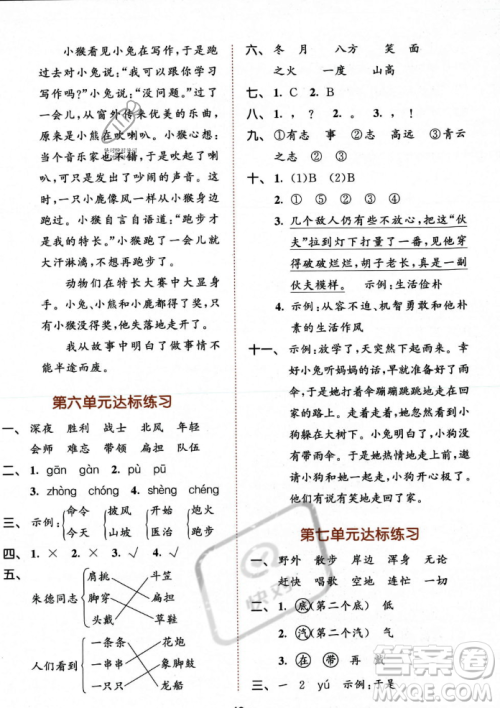 小猴看见小兔在写作，于是跑过去说：“我跟你好好学习写作可以吗？”小兔说：“没问题。”过了一会儿，窗外传来优美的乐声，原来是小熊在吹喇叭。小猴心想：当个音乐家不错，于是吹起了喇叭，可发出了吵闹的声音。又过了一会儿，一只小鹿像风一样从小猴身边跑过。小猴自言自语道：“跑步才是我的特长。”小猴跑了一会儿就大汗淋漓，再也不想跑步了。
动物们在特长大赛中大显身手。小兔、小熊和小鹿都得了奖，只有小猴没得奖，它羡慕极了。
我从故事中明白了做事情不能半途而废。
第六单元达标练习
一、 深夜 胜利 战士 北风 年轻
会师 难忘 带领 扁担 队伍
二、 1. gān gàn 2. pù pū
3. zhòng chóng 4. shèng chéng
三、 示例： 命令 披风 古代 跳舞
今天 山坡 医治 跑步
四、 1. × 2. × 3. √ 4. √
五、
朱德同志 肩挑 斗笠
脚穿 扁担
头戴 草鞋
人们看到 一条条 花炮
一串串 象脚鼓
一只只 龙船
六、 冬 月 八方 笑 面
之火 一度 山高
七、 1. C 2. B
八、 ， ！ 1. ， 2. 。 3. ！
九、 ①有志 ②志 ③高远 ③青云
之志 ② ① ③
十、 1. (1)B (2)B
2. ① ⑤ ④ ② ③
3. 几个敌人仍有些不放心，把这“伙夫”拉到灯下打量了一番，见他穿得破破烂烂，胡子老长，真的是一副伙夫模样。 示例：生活俭朴
4. 示例：从容不迫、机智勇敢和他朴素的生活作风
十一、 示例：放学了，天突然下起雨来。幸好小兔听妈妈的话，带了雨伞。它打着雨伞蹦蹦跳跳地走在回家的路上。半路上，它看到前面的小狗没有打伞，在大雨中奔跑。小兔追上小狗，对它说：“小狗，我们一起打伞回家吧！”小狗感激地说：“谢谢你！”于是，小狗和小兔开开心心地走在回家的路上。
第七单元达标练习
一、 野外 散步 岸边 浑身 无论
赶快 唱歌 空地 连忙 认真
二、 1. 底(第二个底) 低
2. 汽(第二个汽) 气
3. 在 带 再 戴
三、 一 2 yú 示例：于是